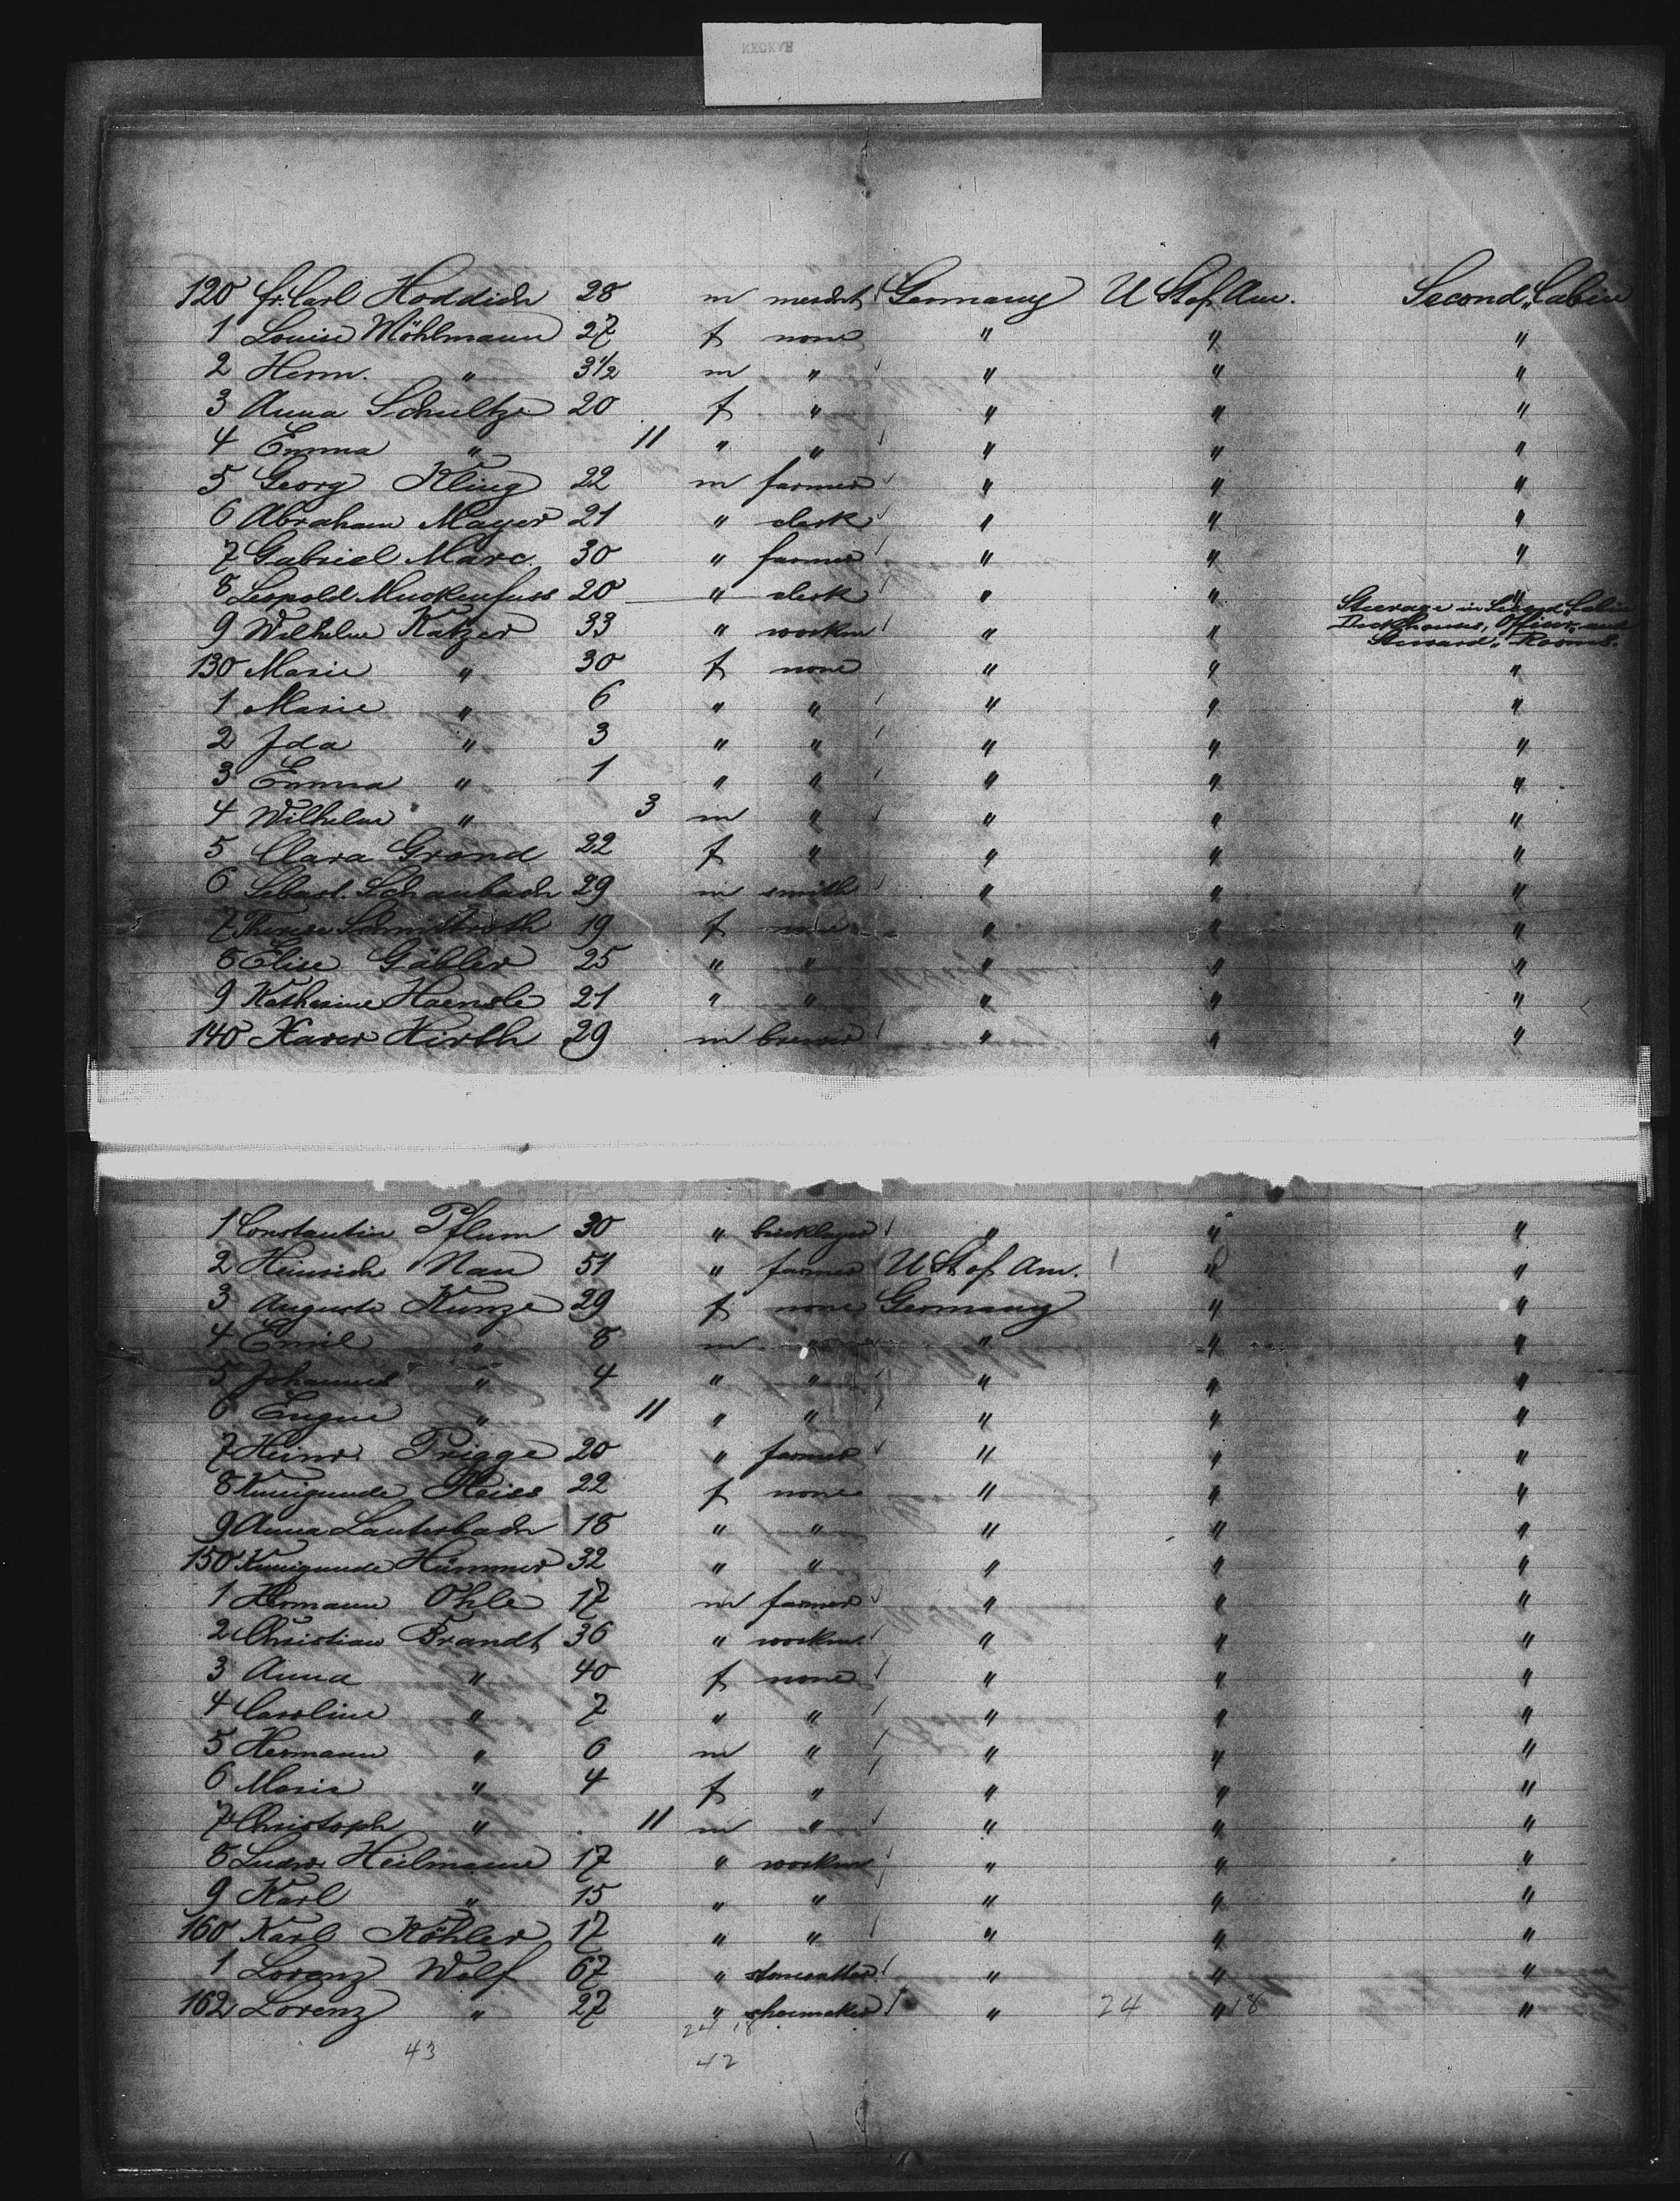 120 Fr. Carl Hoddich 28 m mercht Germany U St of Am. Second Cabin
1 Louise Möhlmann 27 f none " " "
2 Herm. " 3 1/2 m " " " "
3 Anna Schultze 20 f " " " "
4 Emma " 11 " " " " "
5 Georg Kling 22 m farmer " " "
6 Abraham Mayer 21 " clerk " " "
7 Gabriel Marc. 30 " farmer " " "
8 Leopold Muckenfuss 20 " clerk " " "
9 Wilhelm Katzer 33 " workm " " Steerage in Second Cabin
Deckhouses, Officer and
Steward's Rooms.
130 Marie " 30 f none " " "
1 Marie " 6 " " " " "
2 Ida " 3 " " " " "
3 Emma " 1 " " " " "
4 Wilhelm " 3 m " " " "
5 Clara Grond 22 f " " " "
6 Sebast. Schaubach 29 m smith " " "
7 Therese Schmittroth 19 f none " " "
8 Elise Gäbler 25 " " " " "
9 Katherine Haensle 21 " " " " "
140 Xaver Hirth 29 m brewer " " "
1 Constantin Pflum 30 " bricklayer " " "
2 Heinrich Nau 51 " farmer U St of Am. " "
3 Auguste Kunze 29 f none Germany " "
4 Emil " 8 m " " " "
5 Johannes " 4 " " " " "
6 Eugen " 11 " " " " "
7 Heinr. Prigge 20 " farmer " " "
8 Kunigunde Reiss 22 f none " " "
9 Anna Lauterbach 18 " " " " "
150 Kunigunde Hümmer 32 " " " " "
1 Hermann Ohle 17 m farmer " " "
2 Christian Brandt 36 " workm. " " "
3 Anna " 40 f none " " "
4 Caroline " 7 " " " " "
5 Hermann " 6 m " " " "
6 Marie " 4 f " " " "
7 Christoph " 11 m " " " "
8 Ludw. Heilmann 17 " workm " " "
9 Karl " 15 " " " " "
160 Karl Köhler 17 " " " " "
1 Lorenz Wolf 67 " stonecutter " " "
162 Lorenz " 27 " shoemaker " 24 " 18 "
24 18
43 42